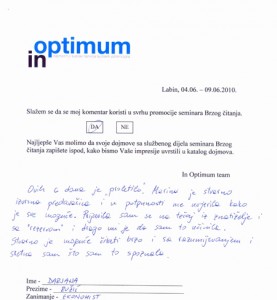 in optimum
Labin, 04.06. – 09.06.2010.
Slažem se da se moj komentar koristi u svrhu promocije seminara Brzog čitanja.
DA NE
Najljepše Vas molimo da svoje dojmove sa službenog dijela seminara Brzog
čitanja zapišete ispod, kako bismo Vaše impresije uvrstili u katalog dojmova.
In Optimum team
Ovih 6 dana je proletilo. Marina je stvarno
izvrsna predavačica i u potpunosti me uvjerila kako
je sve moguće. Prijavila sam se na tečaj iz
i drago mi je da sam to učinila.
Stvarno je moguće čitati brzo i sa razumijevanjem i
sretna sam što sam to spoznala.
Ime -
Prezime -
Zanimanje - EKONOMIST